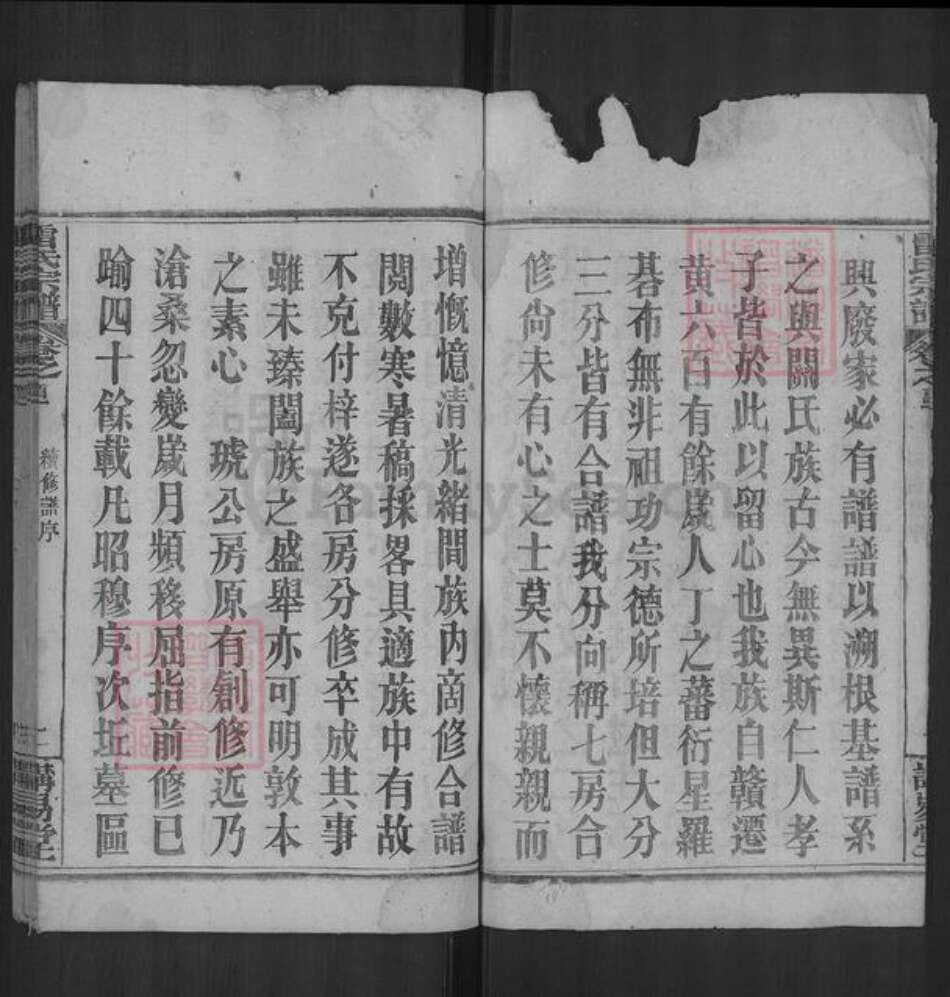 興廢家必有譜譜以溯根基譜系
之與關氏族古今無異斯仁人孝
子皆於此以留心也我族自贛遷
黃六百有餘歲人丁之蕃衍星羅
碁布無非祖功宗德所培但大分
三分皆有合譜我分向稱七房合
修尙未有心之士莫不懷親親而
增慨憶清光緒間族內商修合譜
閱數寒暑稿採畧具適族中有故
不克付梓遂各房分修卒成其事
雖未臻闔族之盛舉亦可明敦本
之素心 琥公房原有創修近乃
滄桑忽變歲月頻移屈指前修已
踰四十餘載凡昭穆序次坵墓區
雷氏宗譜
卷之首
續修譜序
講易堂
FamilySearch